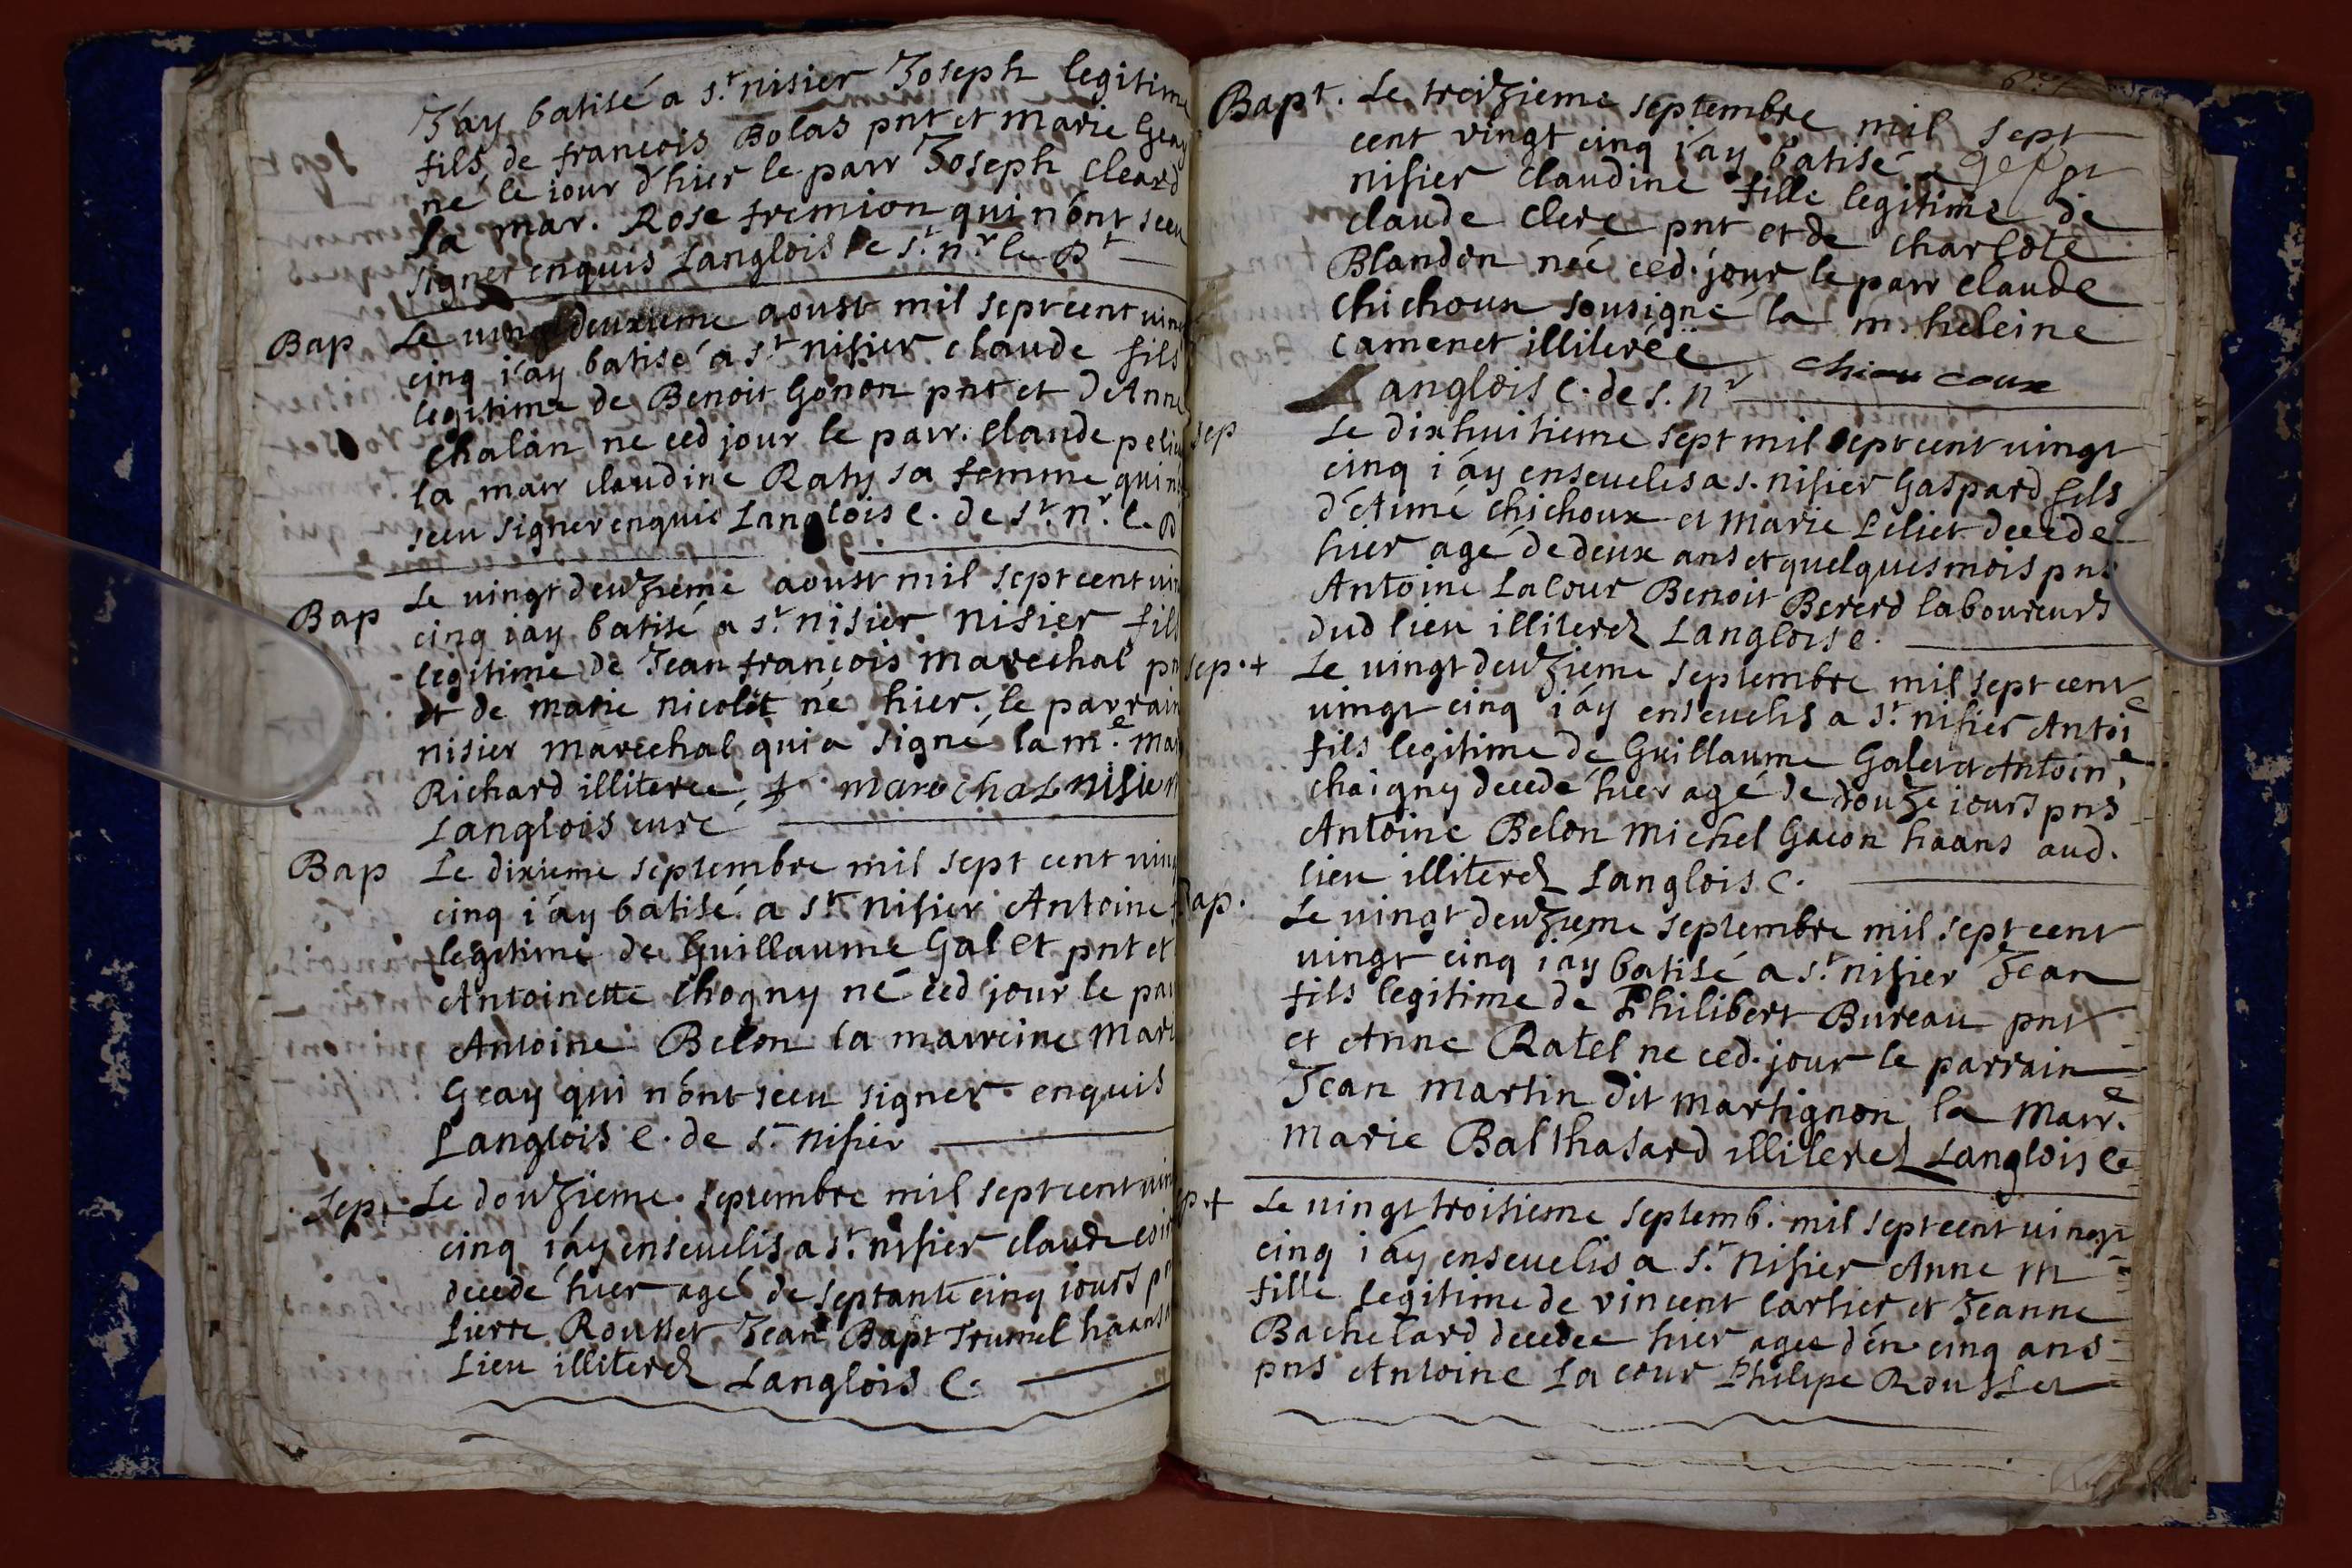 J'ay batisé a st nisier Joseph legitime
fils de francois Bolas pnt et marie Geay
né le iour d'hier le parr Joseph Cleard
la mar. Rose fremion qui n'ont sceu
signer enquis Langlois C de st nr le Bt
Bap
Le vingt deuxieme aoust mil sept cent vin
cinq i'ay batisé a st nisier claude fils
legitime de Benoit Gonon pnt et d'Anne
Chalan ne ced jour le parr. Claude
la marr claudine Raty sa femme qui n
sceu signer enquis Langlois C. de st. nr. l. B
Bap
Le vingt deuzieme aoust mil sept cent vin
cinq iay batisé a st nisier nisier fils
legitime de Jean francois marechal pn
et de marie nicolet né hier. le parrain
nisier marechal qui a signé la me mar
Richard illiteree marechal nisier
Langlois curé
Bap
Le dixieme septembre mil sept cent ving
cinq i'ay batisé a st nisier Antoine f
legitime de Guillaume Galet pnt et
Antoinette Chogny né ced jour le par
Antoine Belon la marreine Mari
Geay qui n'ont sceu signer enquis
Langlois C. de st nisier
Sep +
Le douzieme septembre mil sept cent vin
cinq i'ay ensevelis a st nisier claude
decedé hier agé de septante cinq iours pn
Pierre Rousset Jean Bapt Trumel haans a
Lieu illiterez Langlois C.
Bapt.
Le treizieme septembre mil sept
cent vingt cinq i'ay batisé a st
nisier Claudine fille legitime de
claude Clere pnt et de charlote
Blandon neé ced. jour le parr claude
Chichoux sousigné la m. heleine
Camenet illiterée
Langlois C. de s. nr
sep
Le dixhuitieme sept mil sept cent vingt
cinq i'ay ensevelis a s. nisier Gaspard fils
d'Aimé Chichoux et Marie Leliet decede
hier agé de deux ans et quelques mois pns
Antoine Lacour Benoit Bererd laboureurs
dud lieu illiterez Langlois C.
Sep. +
Le vingt deuzieme septembre mil sept cent
vingt cinq i'ay ensevelis a st nisier Antoie
fils legitime de Guillaume Galet et Antoine
Chaigny decedé hier agé de douze iours pns
Antoine Belon Michel Gacon haans aud.
lieu illiterez Langlois C.
Bap.
Le vingt deuzieme septembre mil sept cent
vingt cinq i'ay batisé a st nisier Jean
fils legitime de Philibert Bureau pnt
et Anne Ratel ne ced. jour le parrain
Jean martin dit martignon la Marre
Marie Balthasard illiterez Langlois C
ep. +
Le vingt troisieme septemb. mil sept cent vingt
cinq i'ay ensevelis a st nisier Anne m
fille legitime de vincent Cartier et Jeanne
Bachelard decedee hier agee d'en. cinq ans
pns Antoine La cour Philipe Rousset